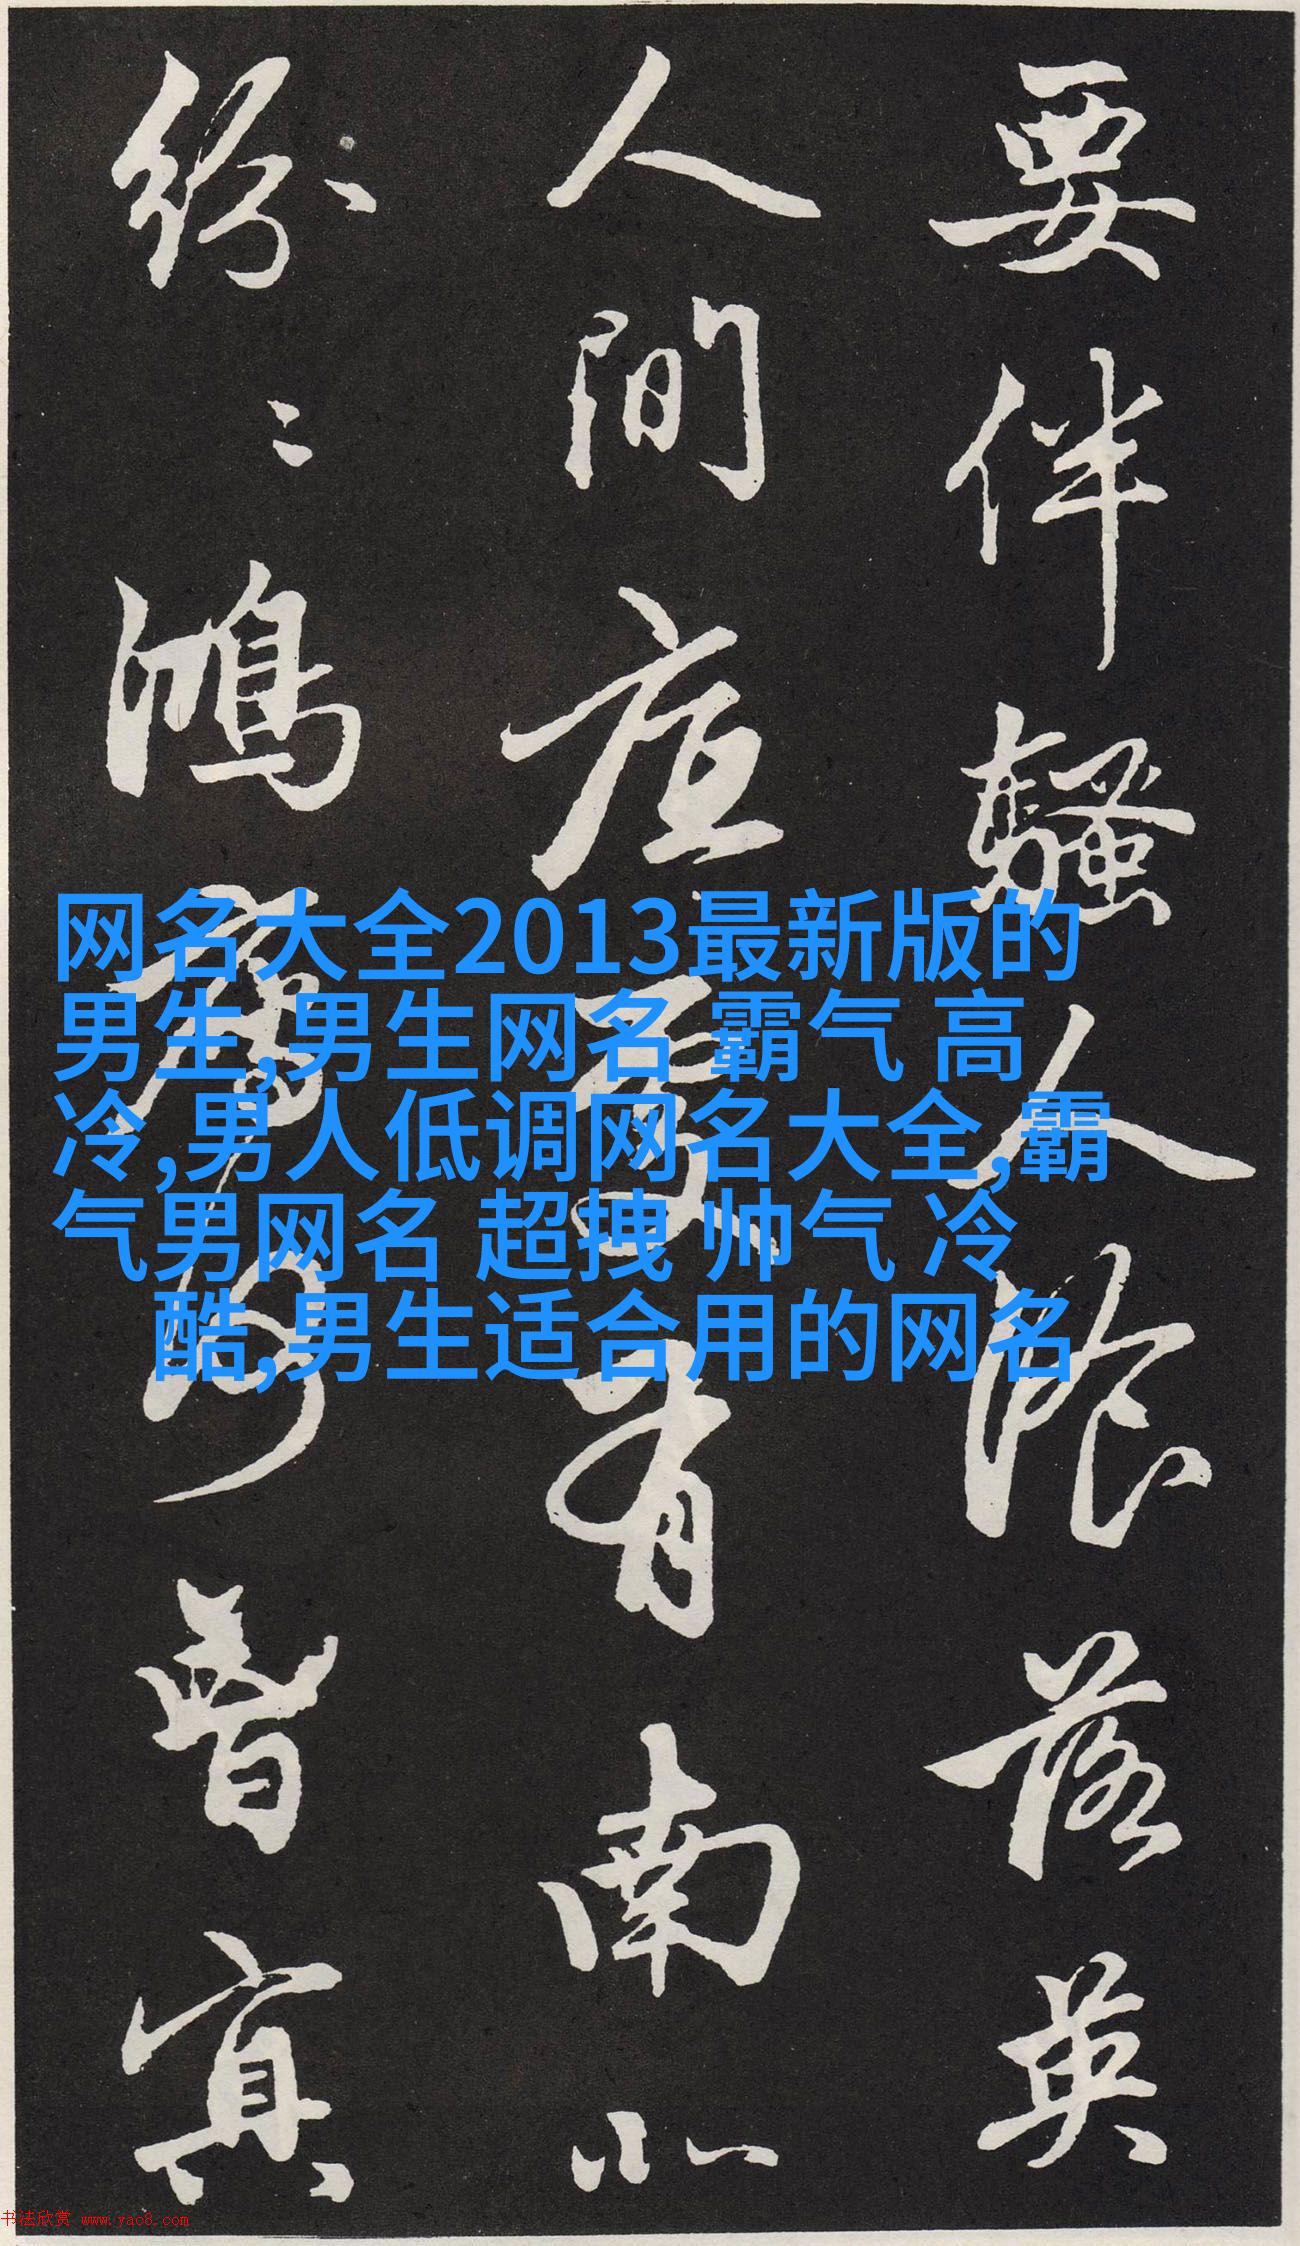 要伴騷人湌落英
人間底處有南北
紛〻鴻鴈何曾冥
网名大全2013最新版的
男生,男生网名 霸气 高
冷,男人低调网名大全,霸
气男网名 超拽 帅气 冷
酷,男生适合用的网名
书法欣赏 www.yac8.com